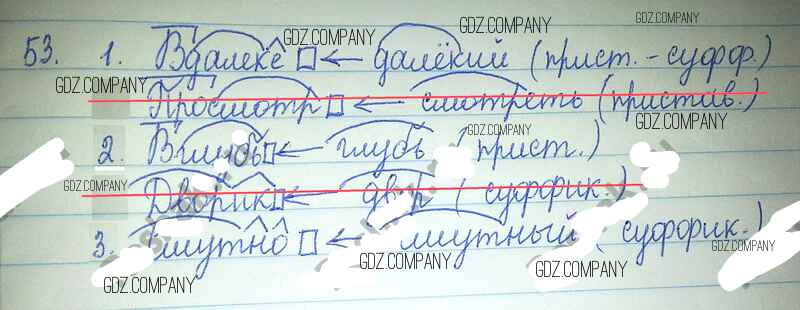 53. 1. Вдалеке ← далёкий (прист. - суфф.)
Просмотр ← смотреть (пристав.)
2. Вглубь ← глубь (прист.)
Дворик ← двор (суффик.)
3. Смутно ← смутный (суффик.)
GDZ.COMPANY
GDZ.COMPANY
GDZ.COMPANY
GDZ.COMPANY
GDZ.COMPANY
GDZ.COMPANY
GDZ.COMPANY
GDZ.COMPANY
GDZ.COMPANY
GDZ.COMPANY
GDZ.COMPANY
GDZ.COMPANY